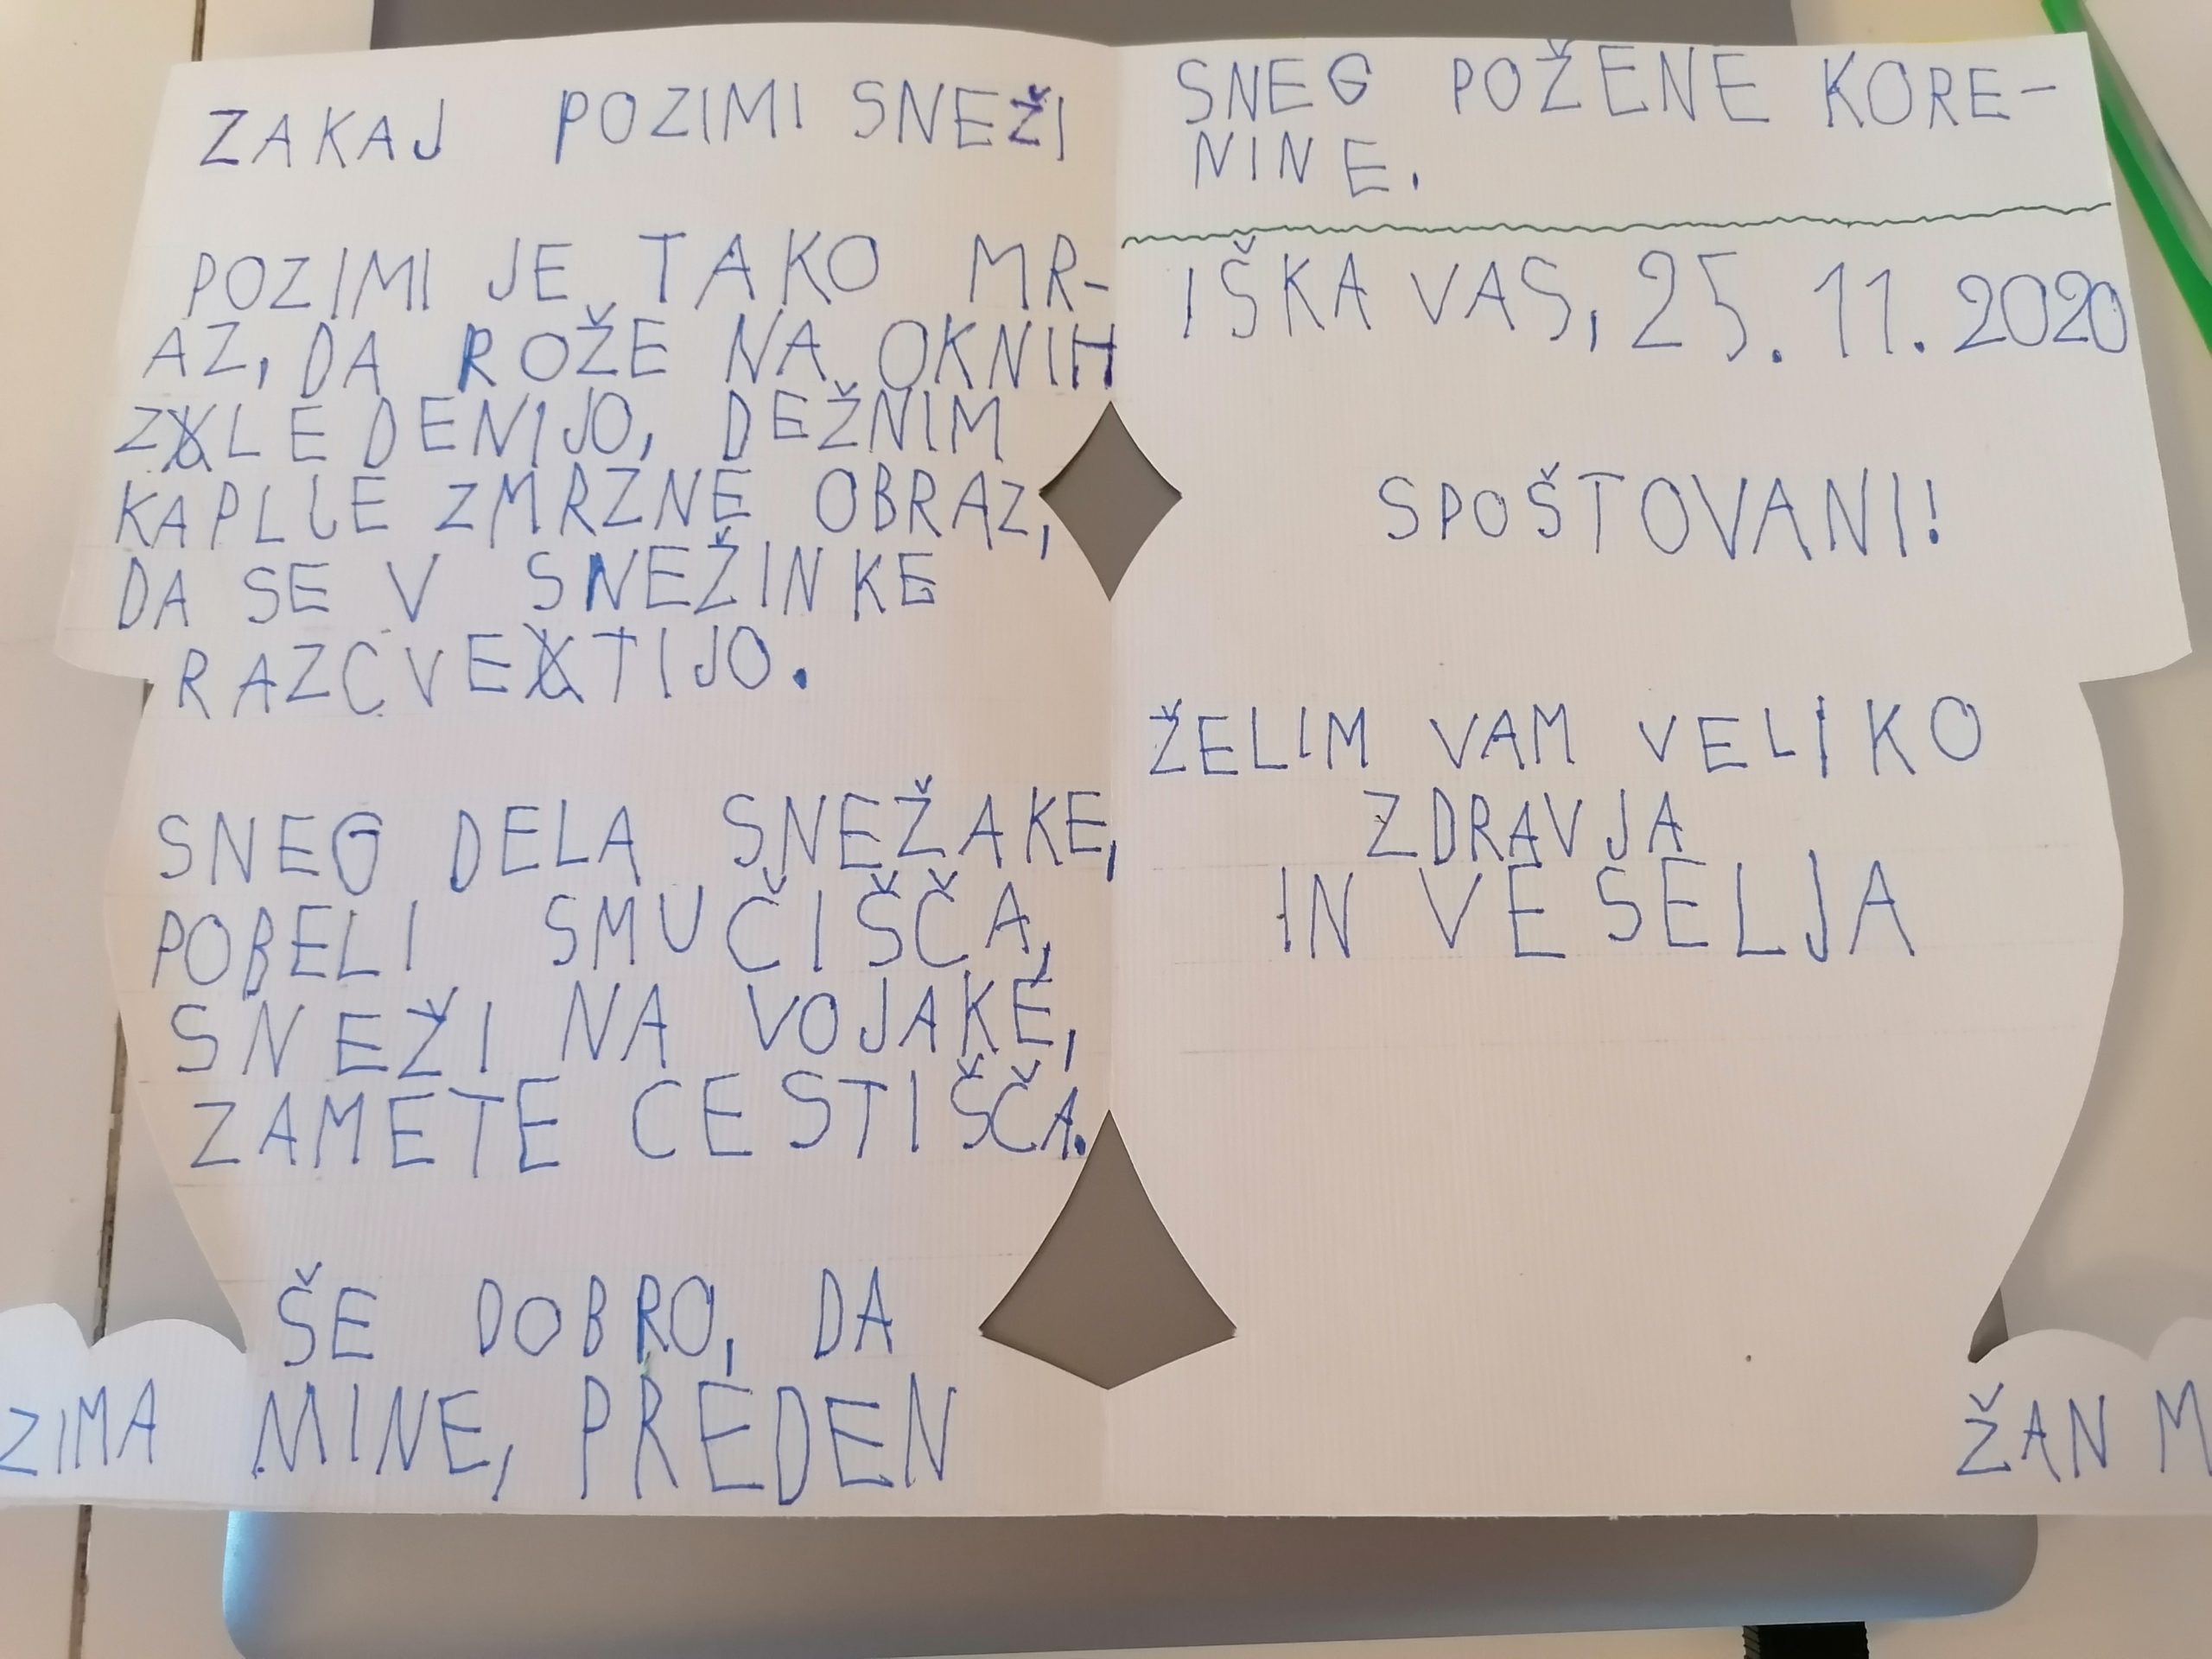 ZAKAJ POZIMI SNEŽI
POZIMI JE TAKO MR-
AZ, DA ROŽE NA OKNIH
ZLEDENIJO, DEŽNIM
KAPLJE ZMRZNE OBRAZ,
DA SE V SNEŽINKE
RAZCVETIJO.
SNEG DELA SNEŽAKE,
POBELI SMUČIŠČA,
SNEŽI NA VOJAKE,
ZAMETE CESTIŠČA.
ŠE DOBRO, DA
ZIMA MINE, PREDEN
SNEG POŽENE KORE-
NINE.
IŠKA VAS, 25. 11. 2020
SPOŠTOVANI!
ŽELIM VAM VELIKO
ZDRAVJA
IN VESELJA
ŽAN M